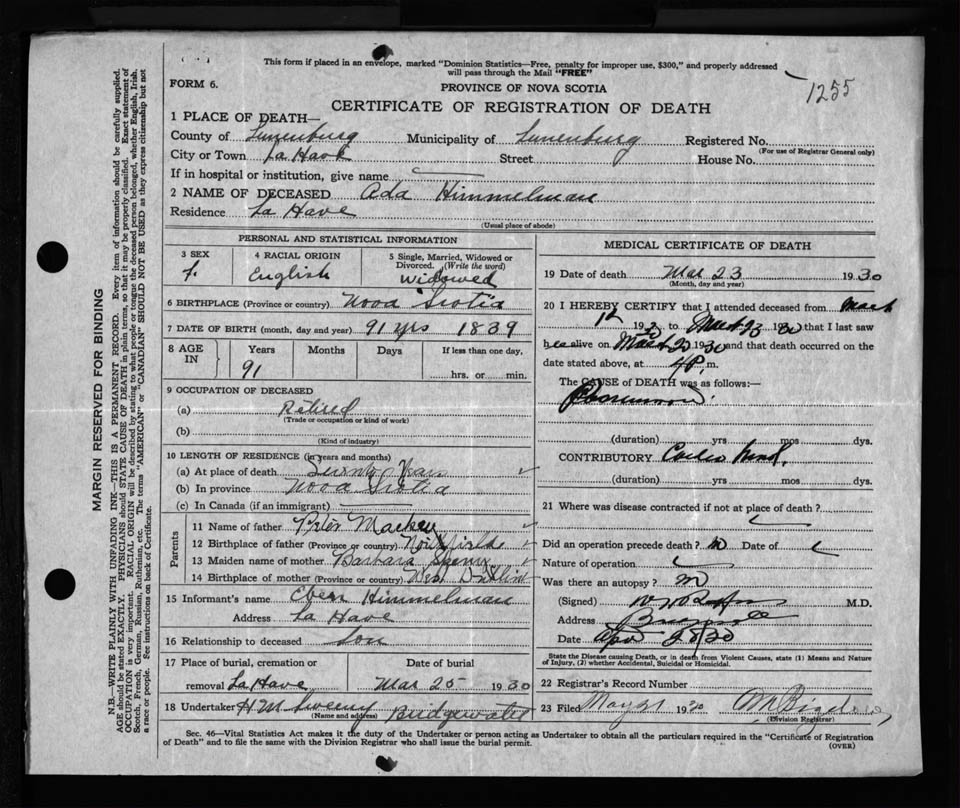 This form if placed in an envelope, marked "Dominion Statistics—Free, penalty for improper use, $300," and properly addressed
will pass through the Mail "FREE"
FORM 6.
PROVINCE OF NOVA SCOTIA
1255
CERTIFICATE OF REGISTRATION OF DEATH
1 PLACE OF DEATH—
County of Lunenburg Municipality of Lunenburg Registered No.
(For use of Registrar General only)
City or Town La Have Street House No.
If in hospital or institution, give name
2 NAME OF DECEASED Ada Himmelman
Residence La Have
(Usual place of abode)
PERSONAL AND STATISTICAL INFORMATION
3 SEX
f.
4 RACIAL ORIGIN
English
5 Single, Married, Widowed or
Divorced. (Write the word)
Widowed
6 BIRTHPLACE (Province or country) Nova Scotia
7 DATE OF BIRTH (month, day and year) 91 yrs 1839
8 AGE IN
Years Months Days If less than one day,
91 hrs. or min.
9 OCCUPATION OF DECEASED
(a) Retired
(Trade or occupation or kind of work)
(b)
(Kind of industry)
10 LENGTH OF RESIDENCE (in years and months)
(a) At place of death Years
(b) In province Nova Scotia
(c) In Canada (if an immigrant)
Parents
11 Name of father Peter
12 Birthplace of father (Province or country) Northfield
13 Maiden name of mother Barbara
14 Birthplace of mother (Province or country)
15 Informant's name Eben Himmelman
Address La Have
16 Relationship to deceased Son
17 Place of burial, cremation or Date of burial
removal La Have Mar 25 1930
18 Undertaker H M Sweeny Bridgewater
(Name and address)
MEDICAL CERTIFICATE OF DEATH
19 Date of death Mar 23 1930
(Month, day and year)
20 I HEREBY CERTIFY that I attended deceased from March
12 19 to March 23 1930 that I last saw
alive on 1930 and that death occurred on the
date stated above, at 4 P. m.
The CAUSE OF DEATH was as follows:—
(duration) yrs mos dys.
CONTRIBUTORY
(duration) yrs mos dys.
21 Where was disease contracted if not at place of death?
Did an operation precede death? no Date of
Nature of operation
Was there an autopsy? no
(Signed) M.D.
Address
Date Apr 28/30
State the Disease causing Death, or in death from Violent Causes, state (1) Means and Nature
of Injury, (2) whether Accidental, Suicidal or Homicidal.
22 Registrar's Record Number
23 Filed May 21 1930
(Division Registrar)
Sec. 46—Vital Statistics Act makes it the duty of the Undertaker or person acting as Undertaker to obtain all the particulars required in the "Certificate of Registration
of Death" and to file the same with the Division Registrar who shall issue the burial permit. (OVER)
MARGIN RESERVED FOR BINDING
N.B.—WRITE PLAINLY WITH UNFADING INK—THIS IS A PERMANENT RECORD. Every item of information should be carefully supplied.
AGE should be stated EXACTLY. PHYSICIANS should STATE CAUSE OF DEATH in plain terms, so that it may be properly classified. Exact statement of
OCCUPATION is very important. RACIAL ORIGIN will be described by stating to what people or tongue the deceased person belonged, whether English, Irish,
Scotch, French, German, Russian, Ruthenian, etc. The terms "AMERICAN" or "CANADIAN" SHOULD NOT BE USED as they express citizenship but not
a race or people. See instructions on back of Certificate.